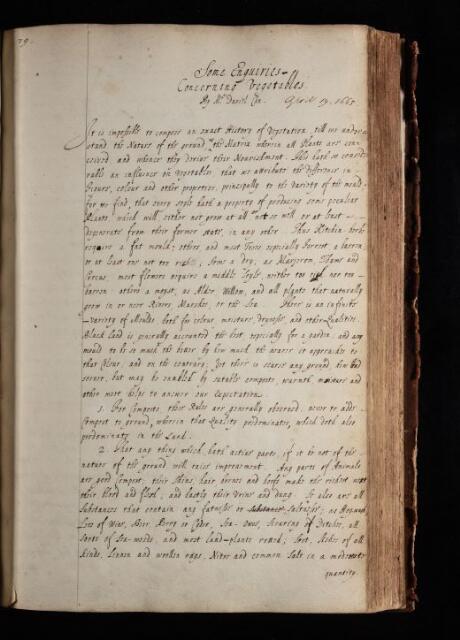 79.
Some Enquiries
Concerning Vegetables.
By Mr. Daniel Cox. April 19. 1665
It is impossible to compose an exact History of Vegetation, till we under
stand the Nature of the ground, the Matrix wherein all Plants are con
ceived and whence they derive their Nourishment. This hath so consid
rable an influence on vegetables, that we attribute the difference in
figure, colour and other properties, principally to the variety of the mould.
For we find, that every soyle hath a property of producing some peculiar
Plants, which will either not grow at all not so well or at least
degenerate from their former state, in any other. Thus Kitchin herbs
require a fat mould; others, and most Trees especially Forrest a barren
or at least one not too rich; some a dry; as Marjoram, Thyme and
Crocus, most flowers require a middle soyle, neither too rich nor too
barren: others a moyst, as Alder, Willow, and all plants that naturally
grow in or neer Rivers Marshes, or the Sea. There is an infinite
variety of Moulds both for colour, moisture, dryness, and other Qualities.
Black land is generally accounted the best especially for a garden, and any
mould to be so much the better by how much the nearer it approaches to
that colour, and on the contrary; yet there is scarce any ground, how bad
soever, but may be enabled by sutable composts, warmth, moisture and
other meet helps to answer our expectation.
1. For Composts, these Rules are generally observed. never to adde
Compost to ground, wherein that Quality predominates, which doth also
predominate in the Land.
2. That any thing which hath active parts, if it be not of the
nature of the ground will cause improvement. Any parts of Animals
are good compost; their skins, hair hornes and hoofs make the richest next
their blood and flesh, and lastly their Urine and dung. So also are all
substances that contain any fatness or saltness; as
Lees of Wine, Beer, Perry or Cider, Sea-Owse, Scouring of Ditches, all
sorts of Sea-weeds, and most land-plants rotted; Soot, Ashes of all
kinds, Linnen and woollen rags, Niter and common Salt in a moderate
quantity.